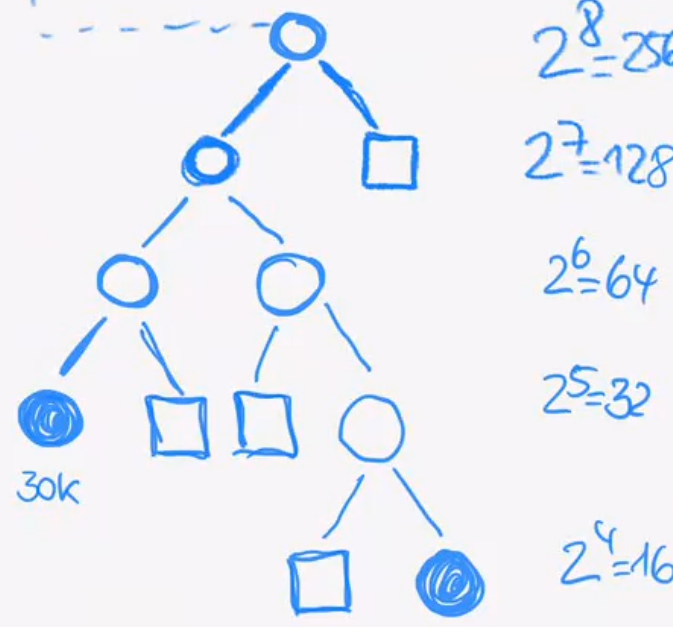 2⁸=256
2⁷=128
2⁶=64
2⁵=32
30K
2⁴=16